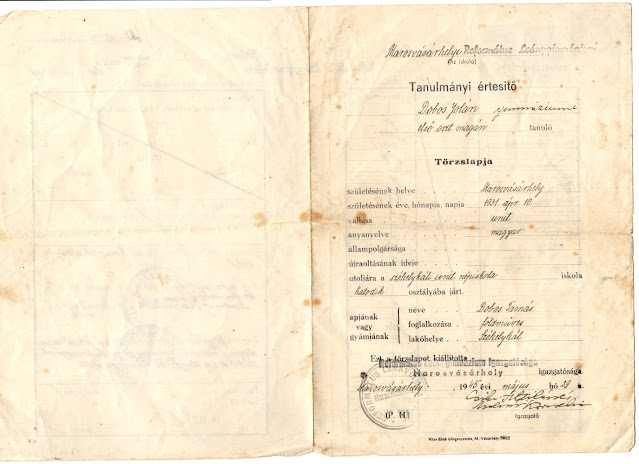 Marosvásárhelyi Református Leánygimnázium
(az iskola)
Tanulmányi értesítő
Dobos Jolán gimnáziumi
első oszt magán tanuló
Törzslapja
születésének helye . . . Marosvásárhely
születésének éve, hónapja, napja . 1931 ápr 10
vallása . . . unit.
anyanyelve . . . magyar
állampolgársága
újraoltásának ideje . . .
utoljára a székelykáli unit. népiskola iskola
hatodik osztályába járt.
apjának vagy gyámjának
neve . . . Dobos Tamás
foglalkozása . földmüves
lakóhelye . . Székelykál
Ezt a törzslapot kiállította
gimnázium Igazgatósága
Marosvásárhely igazgatósága.
Marosvásárhely. 1945 évi május hó 28 n.
(P. H.)
Igazgató